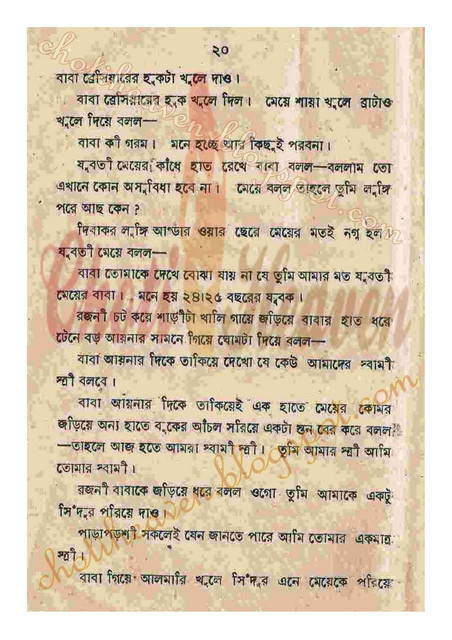 ২০
বাবা ব্রেসিয়ারের হুকটা খুলে দাও।
বাবা ব্রেসিয়ারের হুক খুলে দিল। মেয়ে শায়া খুলে ব্রাটাও
খুলে দিয়ে বলল—
বাবা কী গরম। মনে হচ্ছে আর কিছুই পরবনা।
যুবতী মেয়ের কাঁধে হাত রেখে বাবা বলল—বললাম তো
এখানে কোন অসুবিধা হবে না। মেয়ে বলল তাহলে তুমি লুঙ্গি
পরে আছ কেন?
দিবাকর লুঙ্গি আণ্ডার ওয়ার ছেরে মেয়ের মতই নগ্ন হল
যুবতী মেয়ে বলল—
বাবা তোমাকে দেখে বোঝা যায় না যে তুমি আমার মত যুবতী
মেয়ের বাবা। মনে হয় ২৪।২৫ বছরের যুবক।
রজনী চট করে শাড়ীটা খালি গায়ে জড়িয়ে বাবার হাত ধরে
টেনে বড় আয়নার সামনে গিয়ে ঘোমটা দিয়ে বলল—
বাবা আয়নার দিকে তাকিয়ে দেখো যে কেউ আমাদের স্বামী
স্ত্রী বলবে।
বাবা আয়নার দিকে তাকিয়েই এক হাতে মেয়ের কোমর
জড়িয়ে অন্য হাতে বুকের আঁচল সরিয়ে একটা স্তন বের করে বলল
—তাহলে আজ হতে আমরা স্বামী স্ত্রী। তুমি আমার স্ত্রী আমি
তোমার স্বামী।
রজনী বাবাকে জড়িয়ে ধরে বলল ওগো তুমি আমাকে একটু
সিঁদুর পরিয়ে দাও।
পাড়াপড়শী সকলেই যেন জানতে পারে আমি তোমার একমাত্র
স্ত্রী।
বাবা গিয়ে আলমারি খুলে সিঁদুর এনে মেয়েকে পরিয়ে
chotiheaven.blogspot.com
chotiheaven.blogspot.com